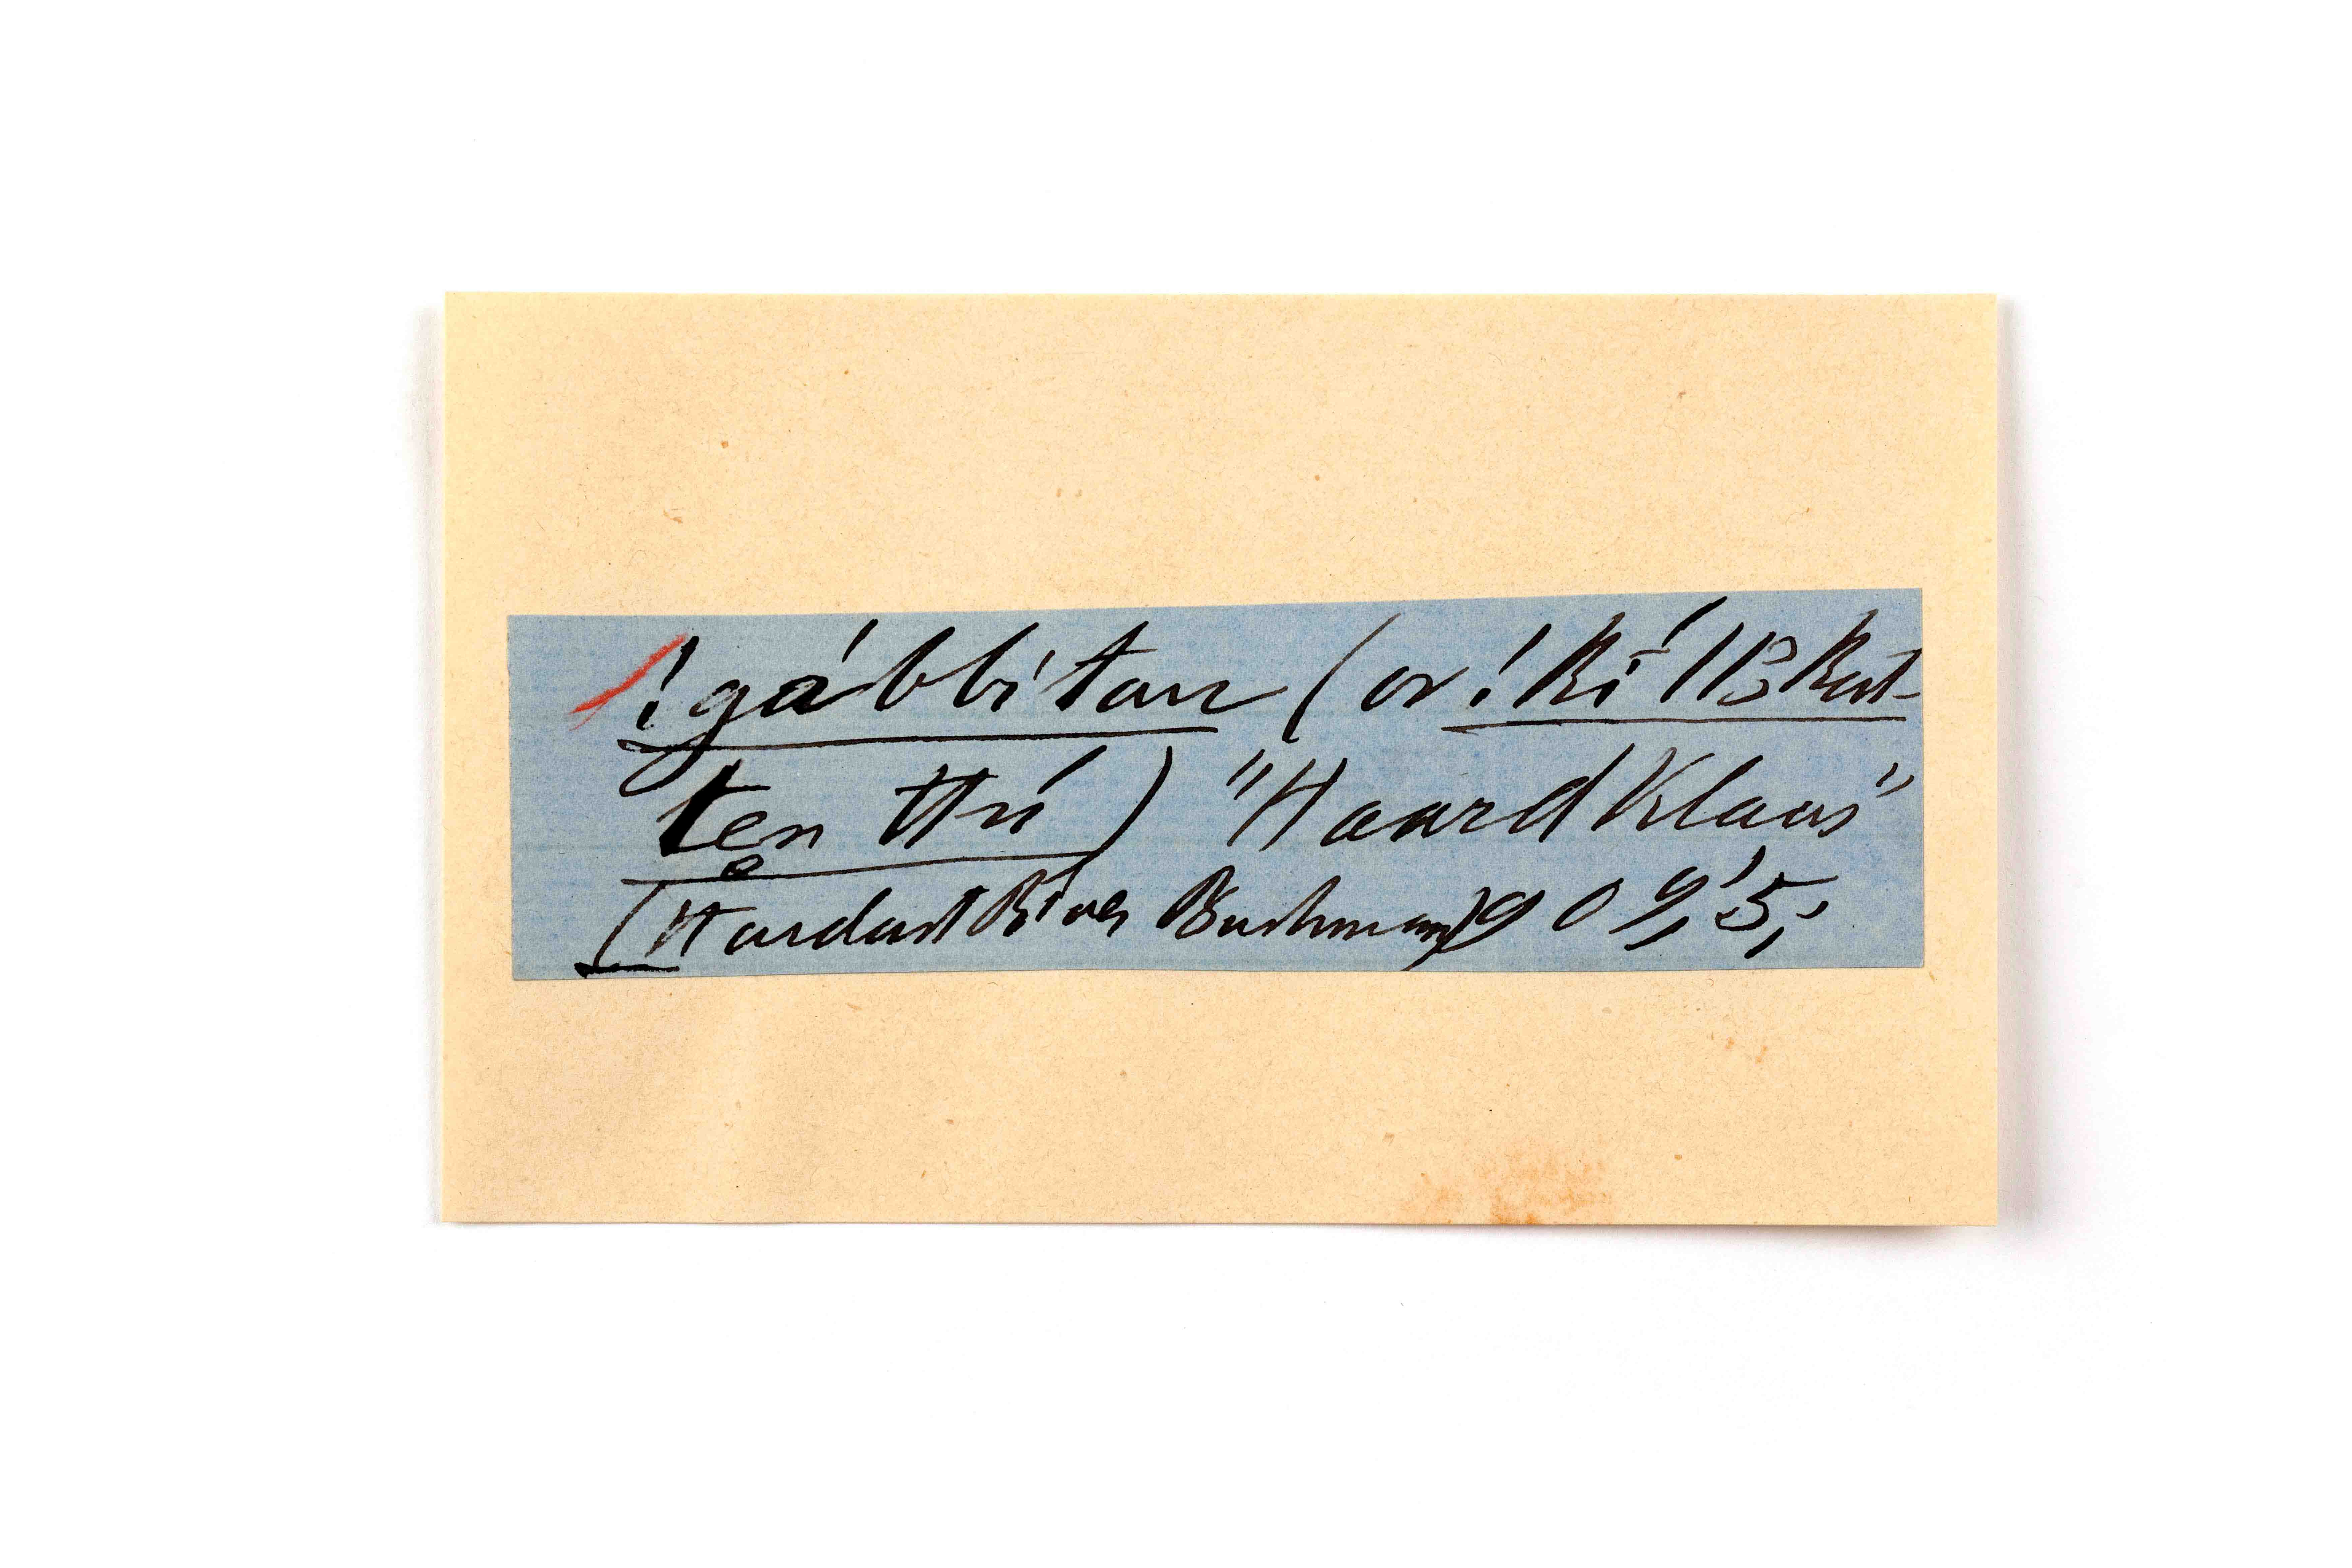 !gábbitan (or !kī́ ||3 kut-
ten ttú) "Haard Klaas"
(Hardast River Bushman) 909,'5,'